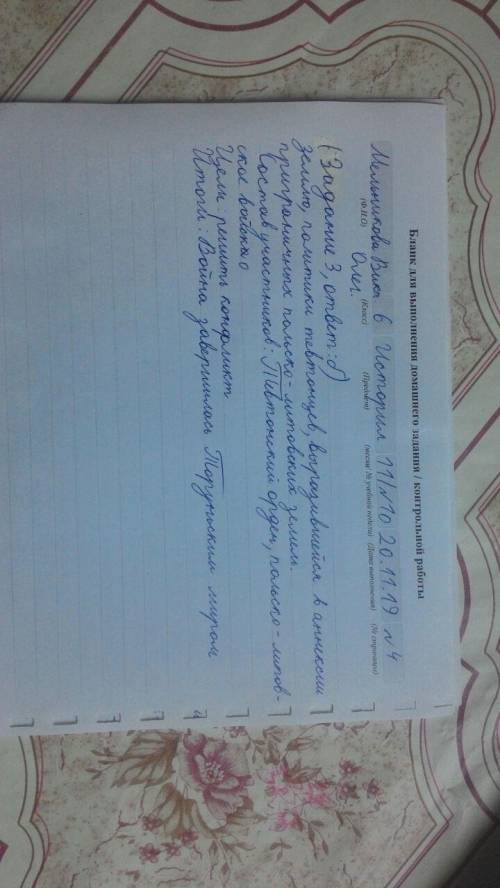 Бланк для выполнения домашнего задания / контрольной работы
Мельникова Вик 6 История 11/№10 20.11.19 №4
Олег.
(Ф.И.О) (Класс) (Предмет) (месяц/ № учебной недели) (Дата выполнения) (№ страницы)
(Задание 3, ответ: б)
земли, политики тевтонцев, выразившейся в аннексии
приграничных польско-литовских земель.
Состав участников: Тевтонский орден, польско-литов-
ское войско
Цели: решить конфликт
Итоги: Война завершилась Торуньским миром